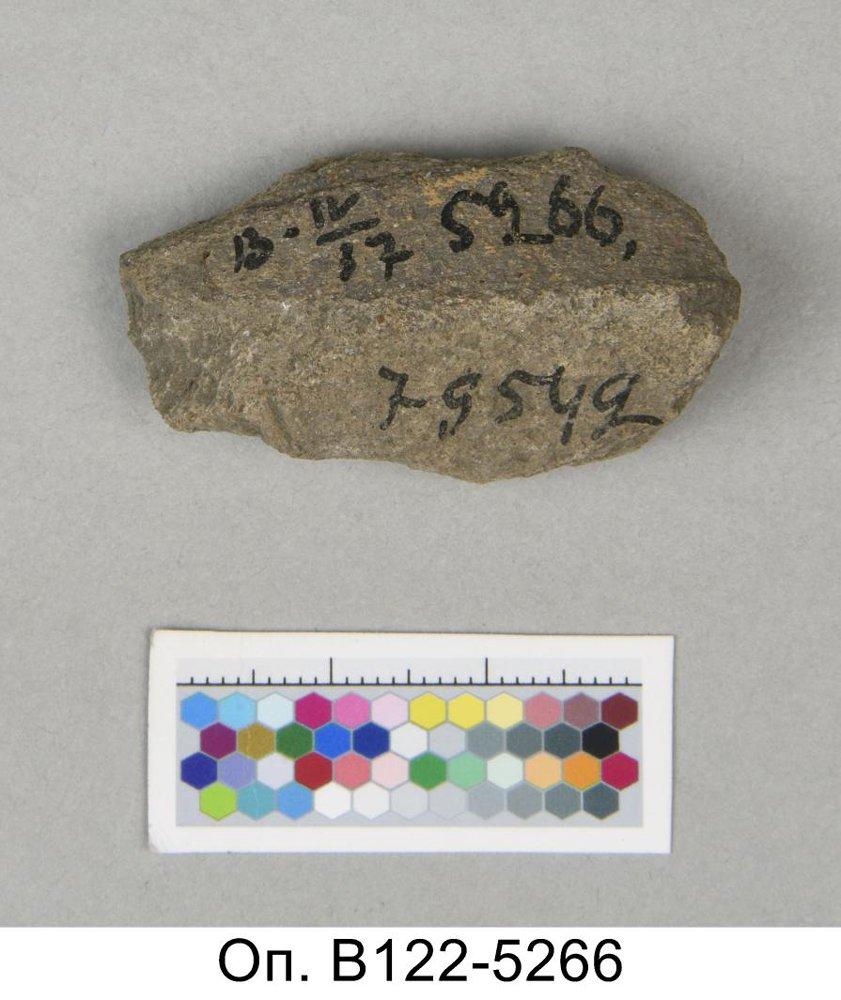 В-IV/17 5266,
79542
Оп. В122-5266